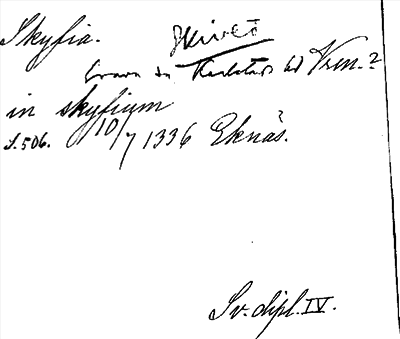 Skyfia. Skivet
Grava sn Karlstads hd Vrm.?
in skyfium
S. 506. 10/7 1336 Eknäs.
Sv. dipl. IV.